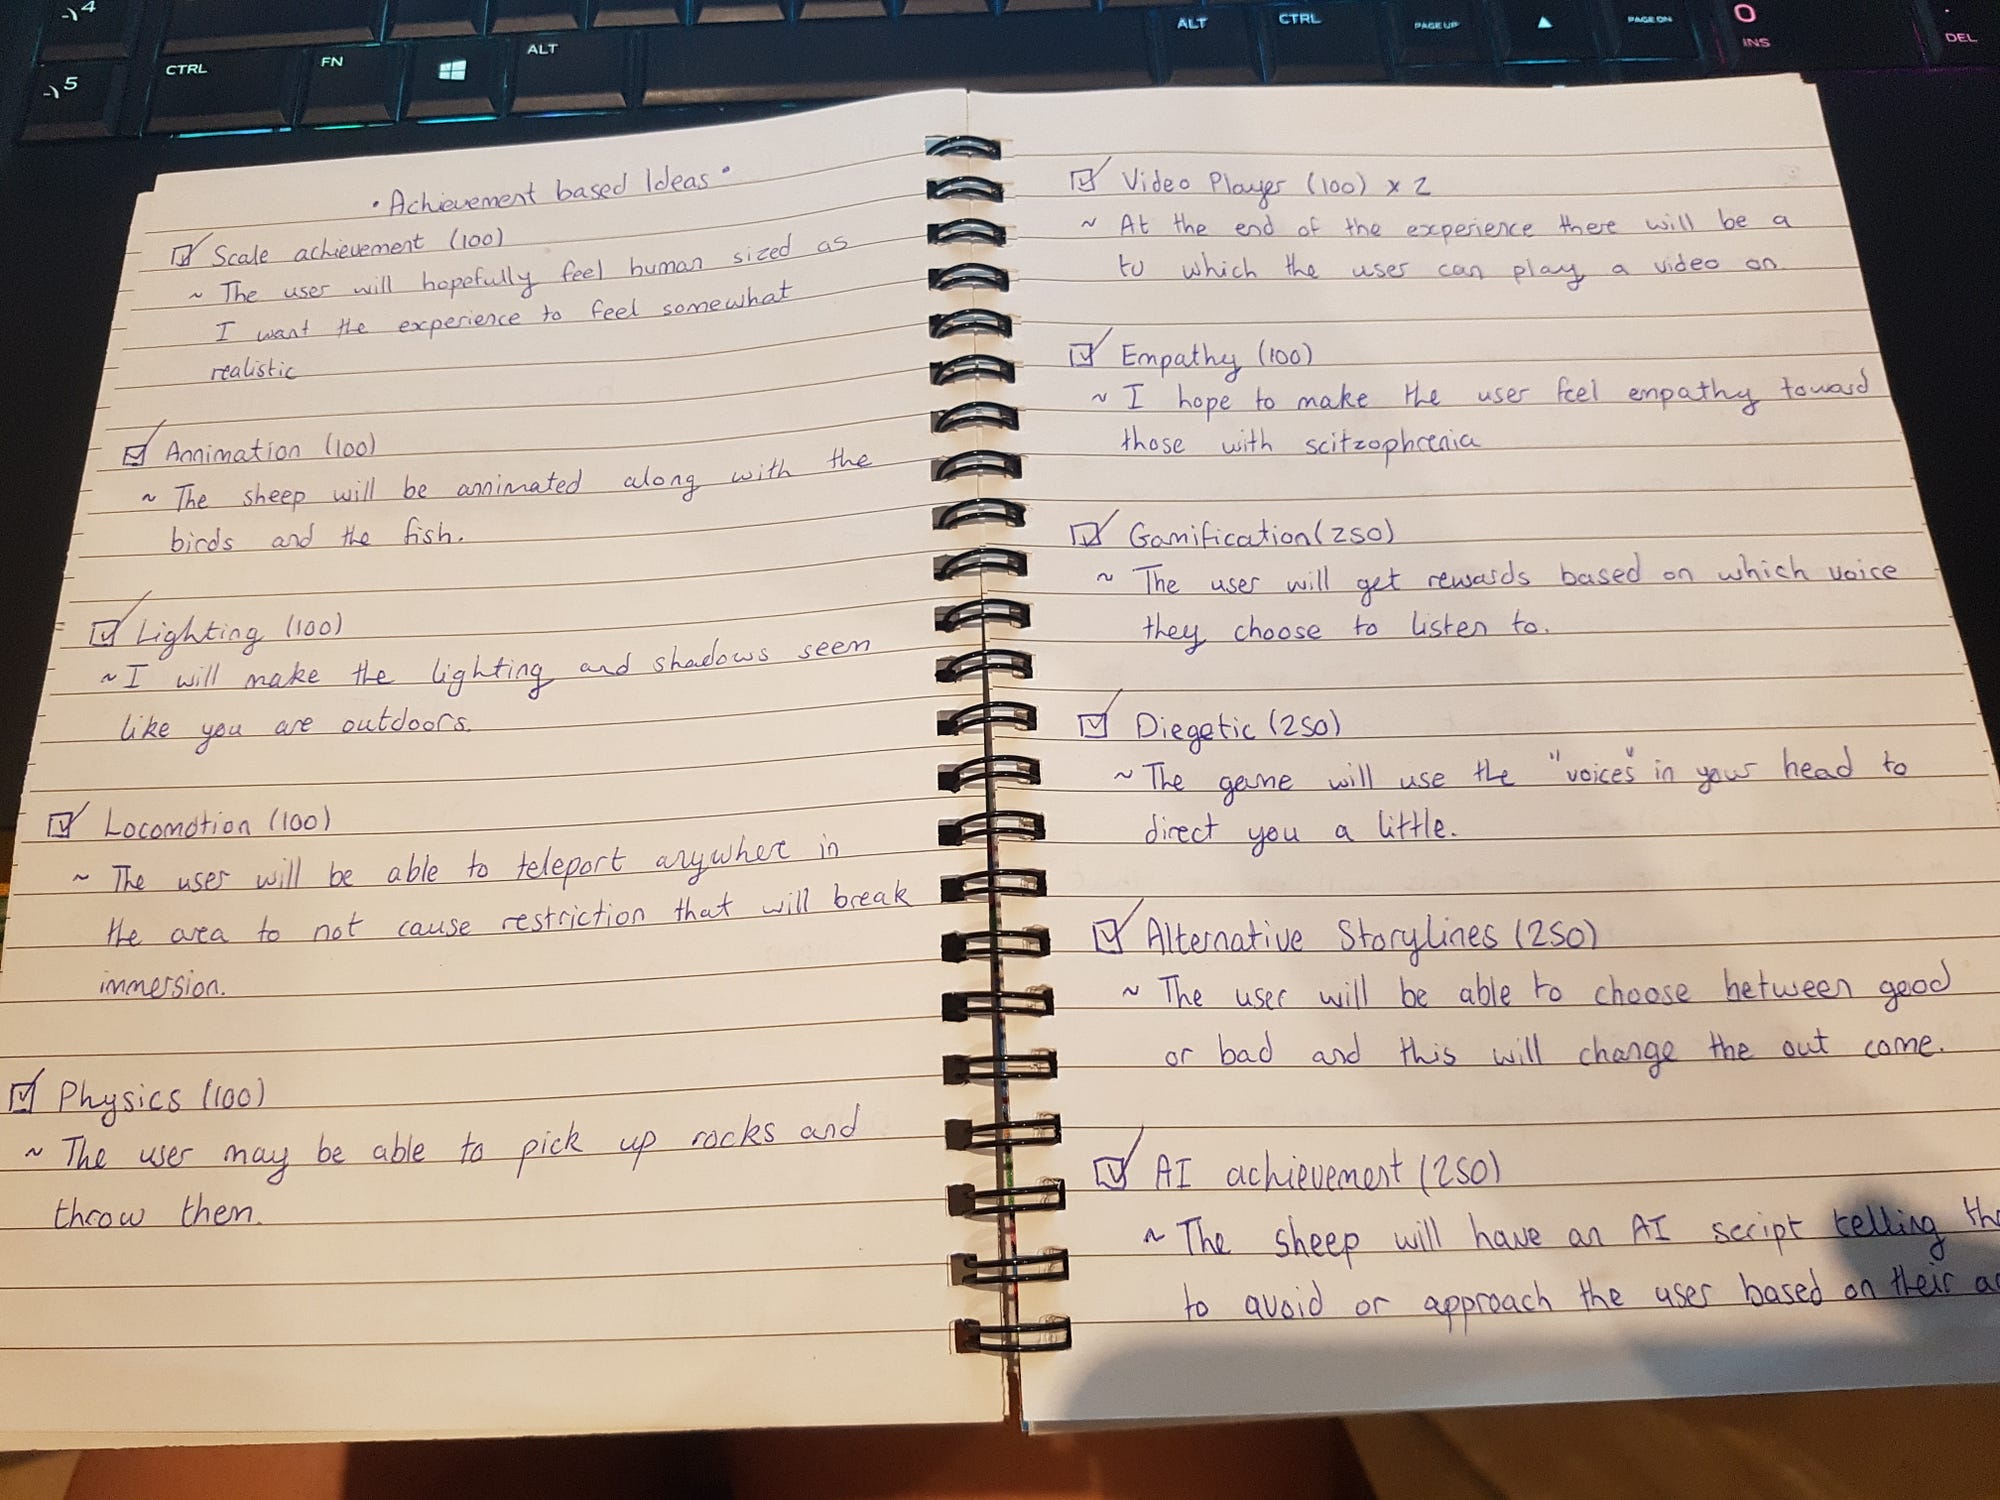 -)4
ALT
CTRL
PAGE UP
▲
PAGE DN
0
INS
DEL
-)5
CTRL
FN
ALT
• Achievement based Ideas •
☑ Scale achievement (100)
~ The user will hopefully feel human sized as
I want the experience to feel somewhat
realistic
☑ Annimation (100)
~ The sheep will be annimated along with the
birds and the fish.
☑ Lighting (100)
~ I will make the lighting and shadows seem
like you are outdoors.
☑ Locomotion (100)
~ The user will be able to teleport anywhere in
the area to not cause restriction that will break
immersion.
☑ Physics (100)
~ The user may be able to pick up rocks and
throw them.
☑ Video Player (100) x 2
~ At the end of the experience there will be a
to which the user can play a video on.
☑ Empathy (100)
~ I hope to make the user feel empathy toward
those with scitzophrenia
☑ Gamification (250)
~ The user will get rewards based on which voice
they choose to listen to.
☑ Diegetic (250)
~ The game will use the "voices" in your head to
direct you a little.
☑ Alternative Storylines (250)
~ The user will be able to choose between good
or bad and this will change the out come.
☑ AI achievement (250)
~ The sheep will have an AI script telling
to avoid or approach the user based on their